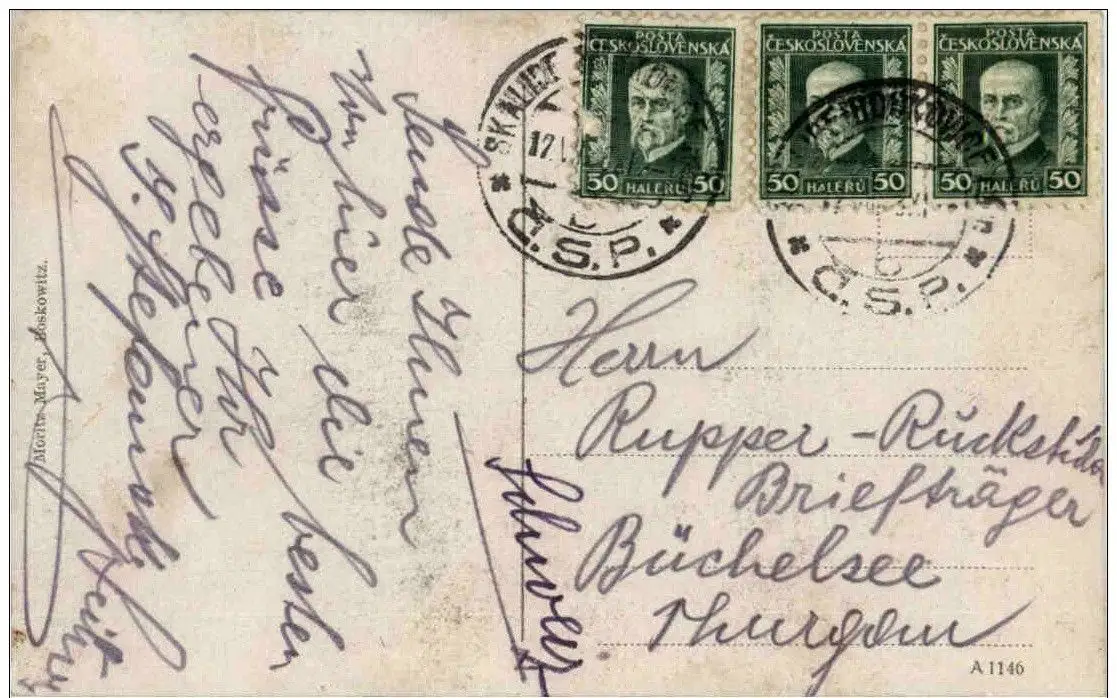 POSTA
ČESKOSLOVENSKÁ
50 HALÉŘŮ 50
POSTA
ČESKOSLOVENSKÁ
50 HALÉŘŮ 50
POSTA
ČESKOSLOVENSKÁ
50 HALÉŘŮ 50
17.V
Č.S.P.
Č.S.P.
Sende Ihnen
von hier die
besten
Grüsse
Ihr
ergebener
Herrn
Rupper-Rückst
Briefträger
Büchelsee
Thurgau
Schweiz
Moritz Mayer, Boskowitz.
A 1146